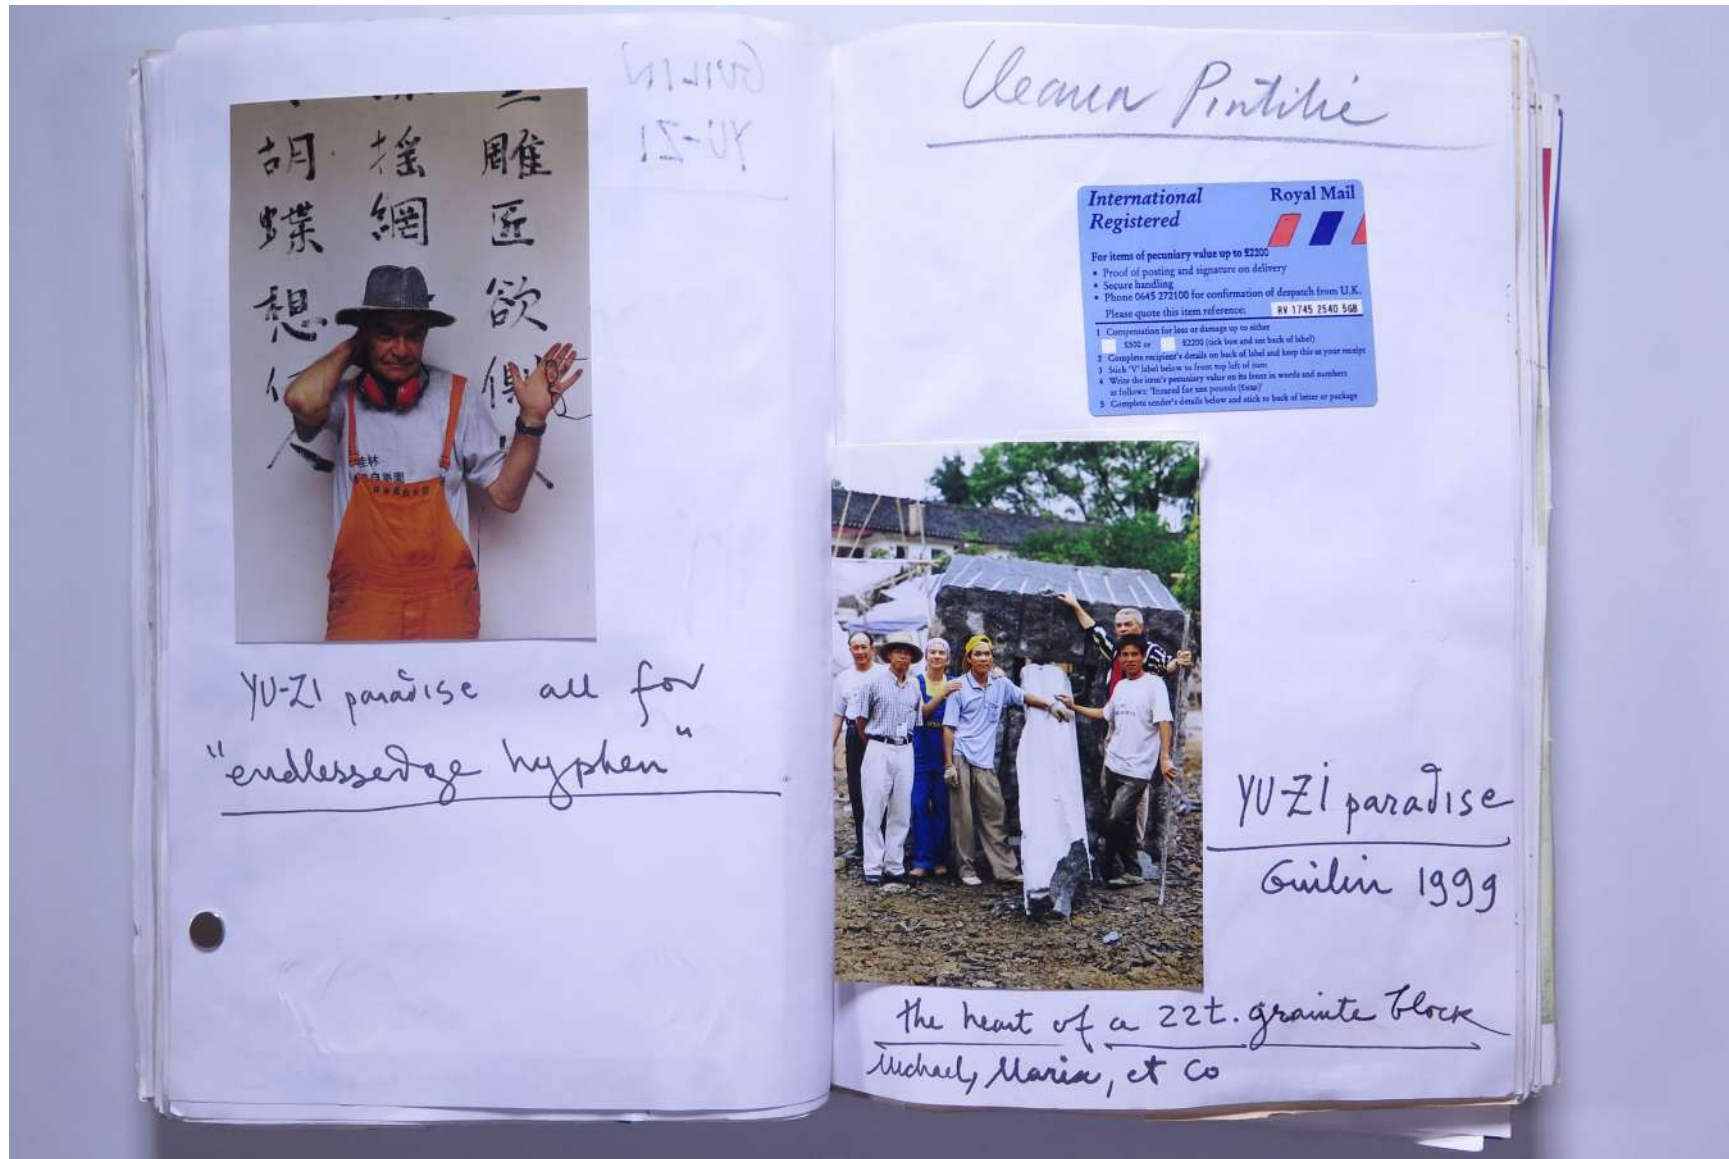 GUILIN
YU-ZI
雕匠欲
搖網
胡蝶想
桂林
YU-ZI paradise all for
"endlessedge hyphen"
Pintilie
International Royal Mail
Registered
For items of pecuniary value up to £2200
• Proof of posting and signature on delivery
• Secure handling
• Phone 0645 272100 for confirmation of despatch from U.K.
Please quote this item reference: RV 1745 2540 5GB
1 Compensation for loss or damage up to either
£500 or £2200 (tick box and see back of label)
2 Complete recipient's details on back of label and keep this as your receipt
3 Stick 'V' label below to front top left of item
4 Write the item's pecuniary value on its front in words and numbers
as follows: 'Insured for xxx pounds (£xxx)'
5 Complete sender's details below and stick to back of letter or package
YU-ZI paradise
Guilin 1999
the heart of a 22t. granite block
Michael, Maria, et Co